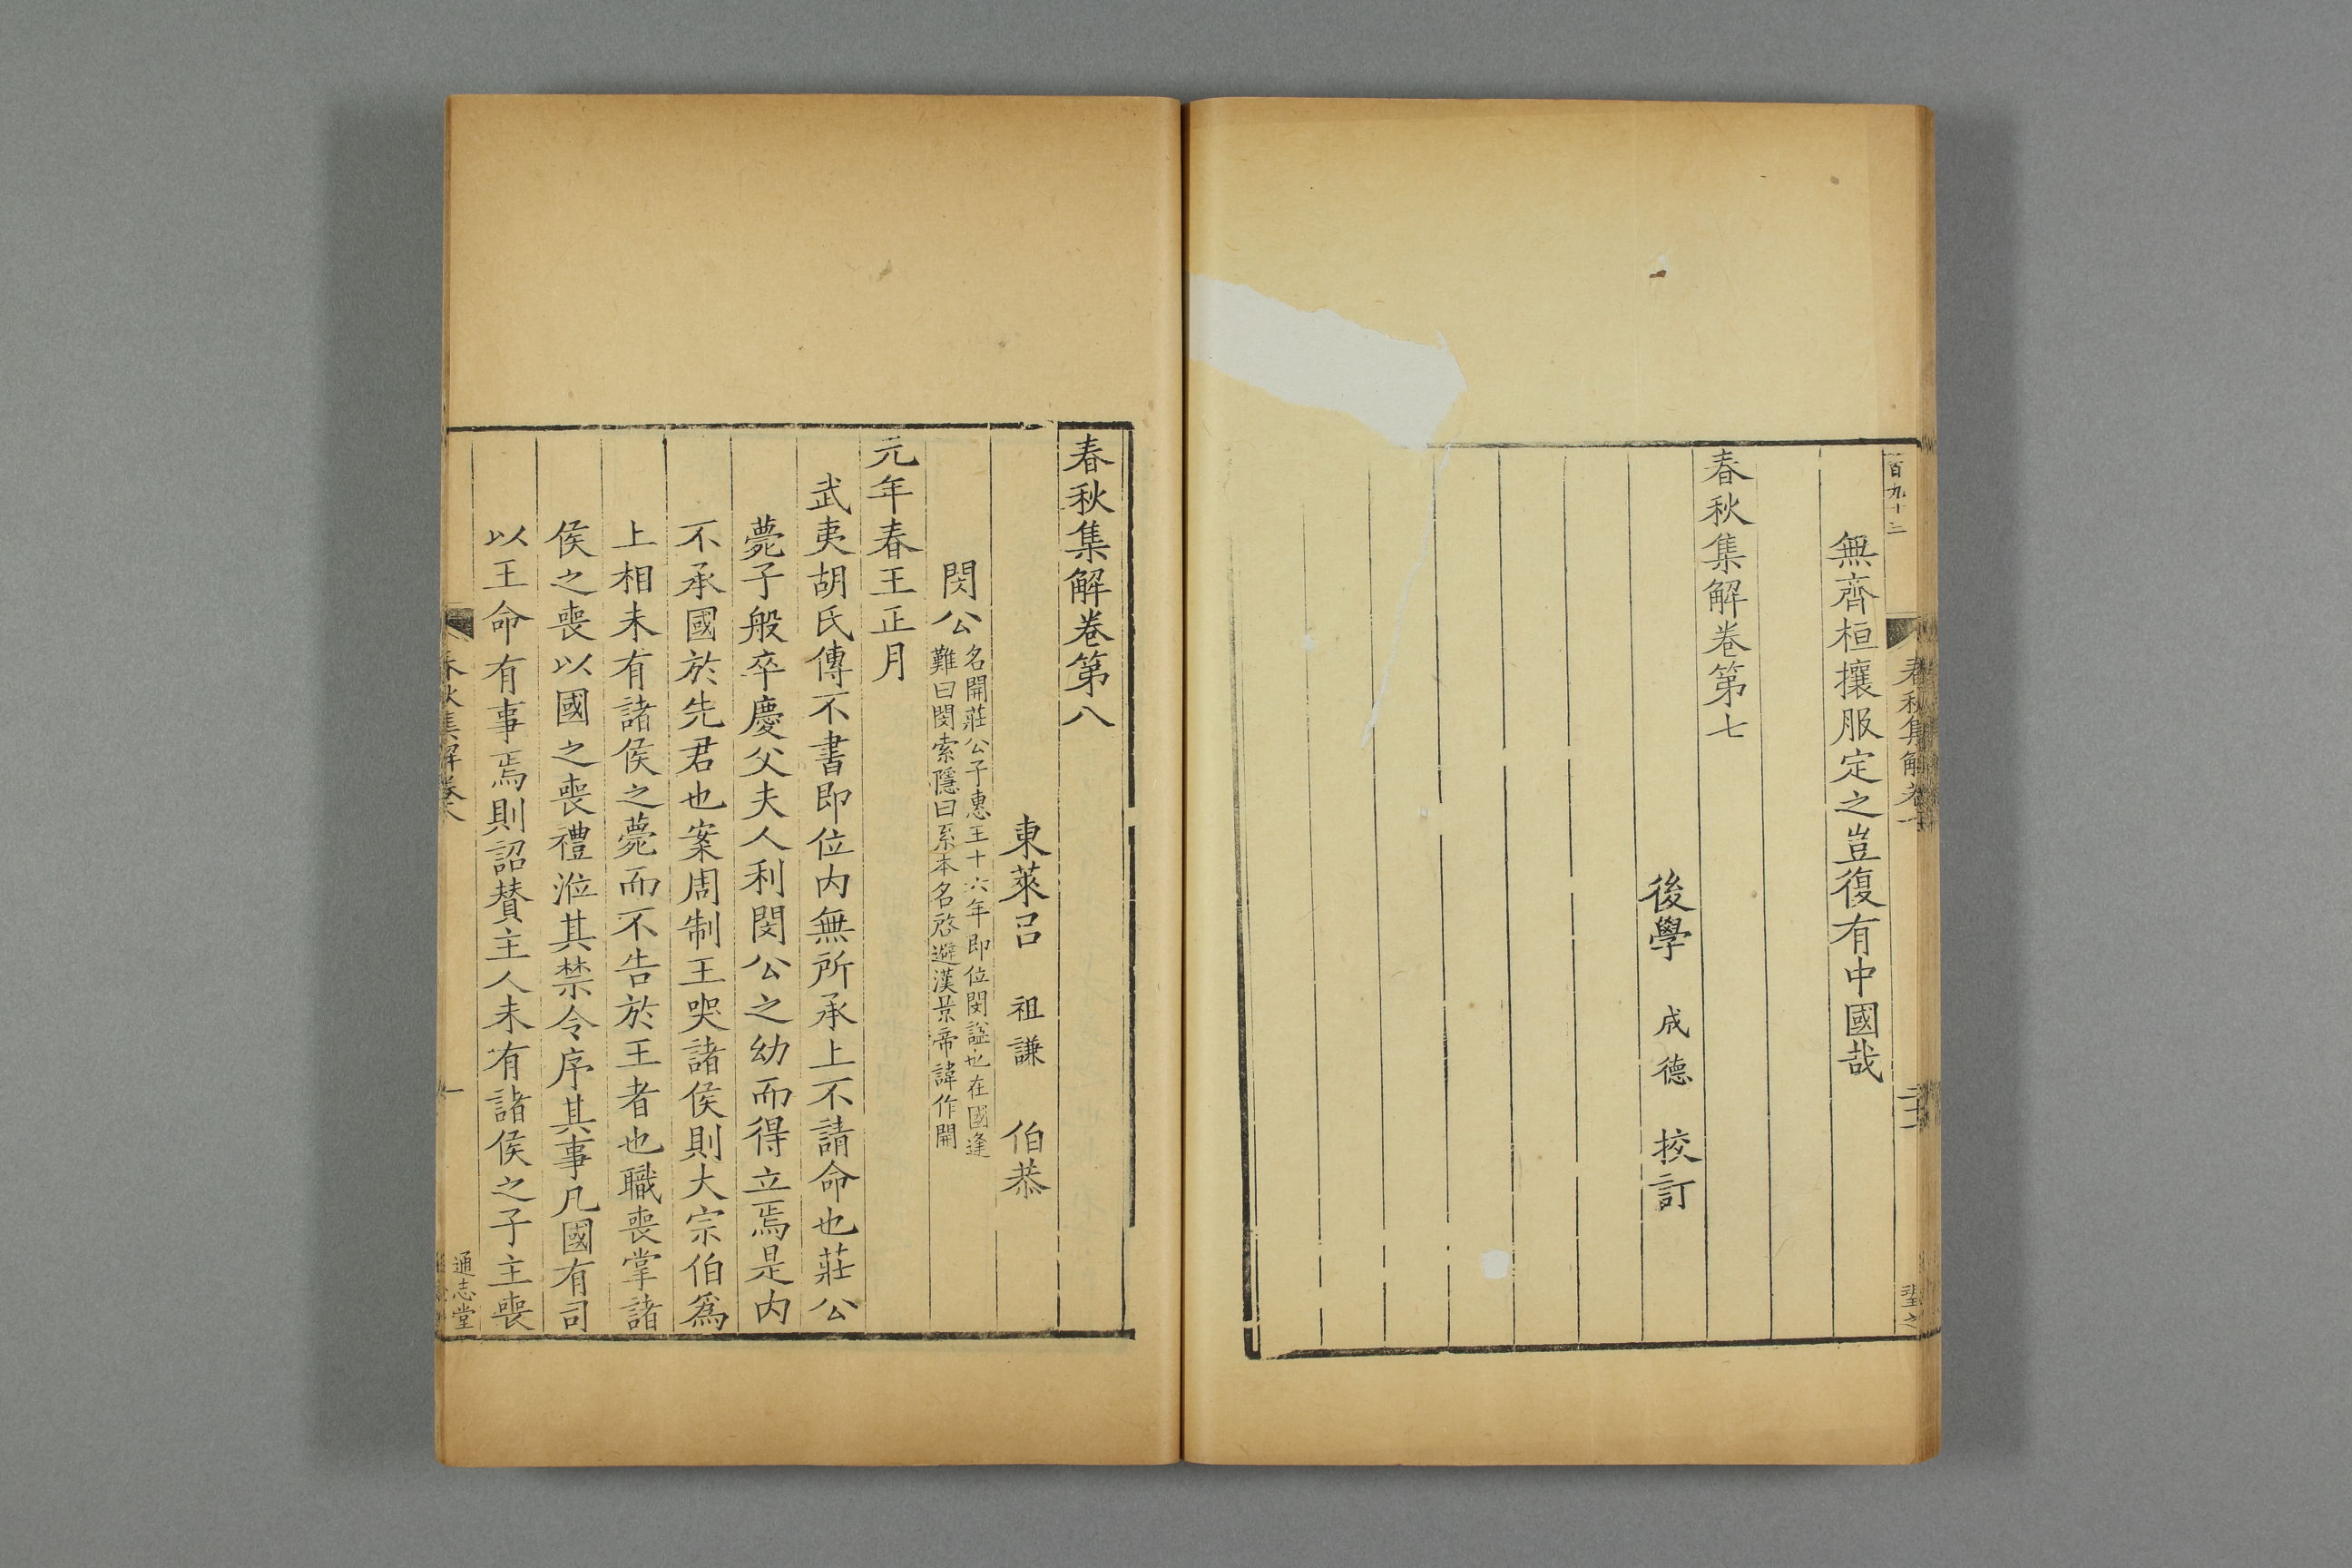 百九十三
無齊桓攘服定之豈復有中國哉
春秋集解卷第七
後學 成德 挍訂
春秋集解卷第八
東萊呂 祖謙 伯恭
閔公 名開莊公子惠王十六年即位閔諡也在國逢
難曰閔索隱曰系本名啓避漢景帝諱作開
元年春王正月
武夷胡氏傳不書即位内無所承上不請命也莊公
薨子般卒慶父夫人利閔公之幼而得立焉是内
不承國於先君也案周制王哭諸侯則大宗伯爲
上相未有諸侯之薨而不告於王者也職喪掌諸
侯之喪以國之喪禮涖其禁令序其事凡國有司
以王命有事焉則詔贊主人未有諸侯之子主喪
春秋集解卷八
一
通志堂